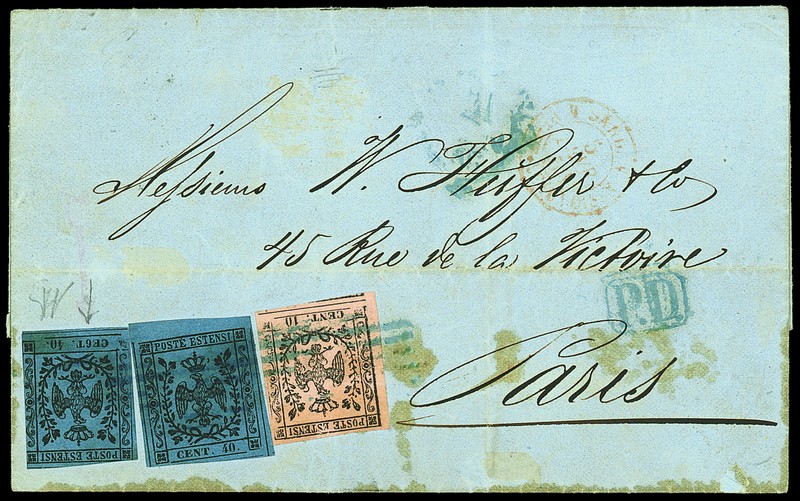 Messieurs W. Huffer & Co
45 Rue de la Victoire
P.D.
Paris
CENT. 40.
POSTE ESTENSI
POSTE ESTENSI
CENT. 40.
CENT. 10
POSTE ESTENSI